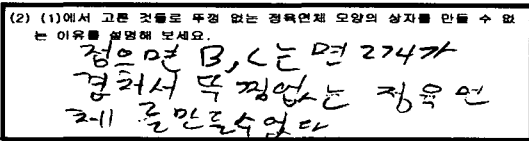 (2) (1)에서 고른 것들로 뚜껑 없는 정육면체 모양의 상자를 만들 수 없
는 이유를 설명해 보세요.
점으면 B, C는 면 2개가
겹처서 뚝껑업는 정육면
체를만들수없다